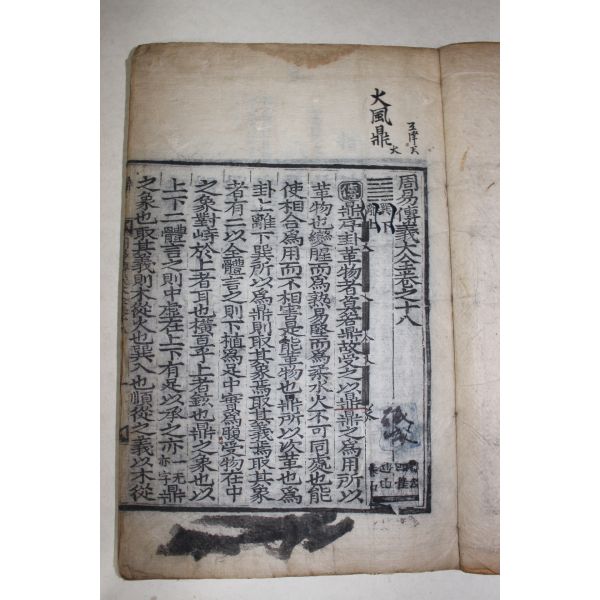 火風鼎
周易傳義大全卷之十八
傳鼎序卦革物者莫若鼎故受之以鼎鼎之爲用所以
革物也變腥而爲熟易堅而爲柔水火不可同處也能
使相合爲用而不相害是能革物也鼎所以次革也爲
卦上離下巽所以爲鼎則取其象焉取其義焉取其象
者有二以全體言之則下植爲足中實爲腹受物在中
之象對峙於上者耳也橫亘乎上者鉉也鼎之象也以
上下二體言之則中虛在上下有足以承之亦一无亦字鼎
之象也取其義則木從火也巽入也順從之義以木從